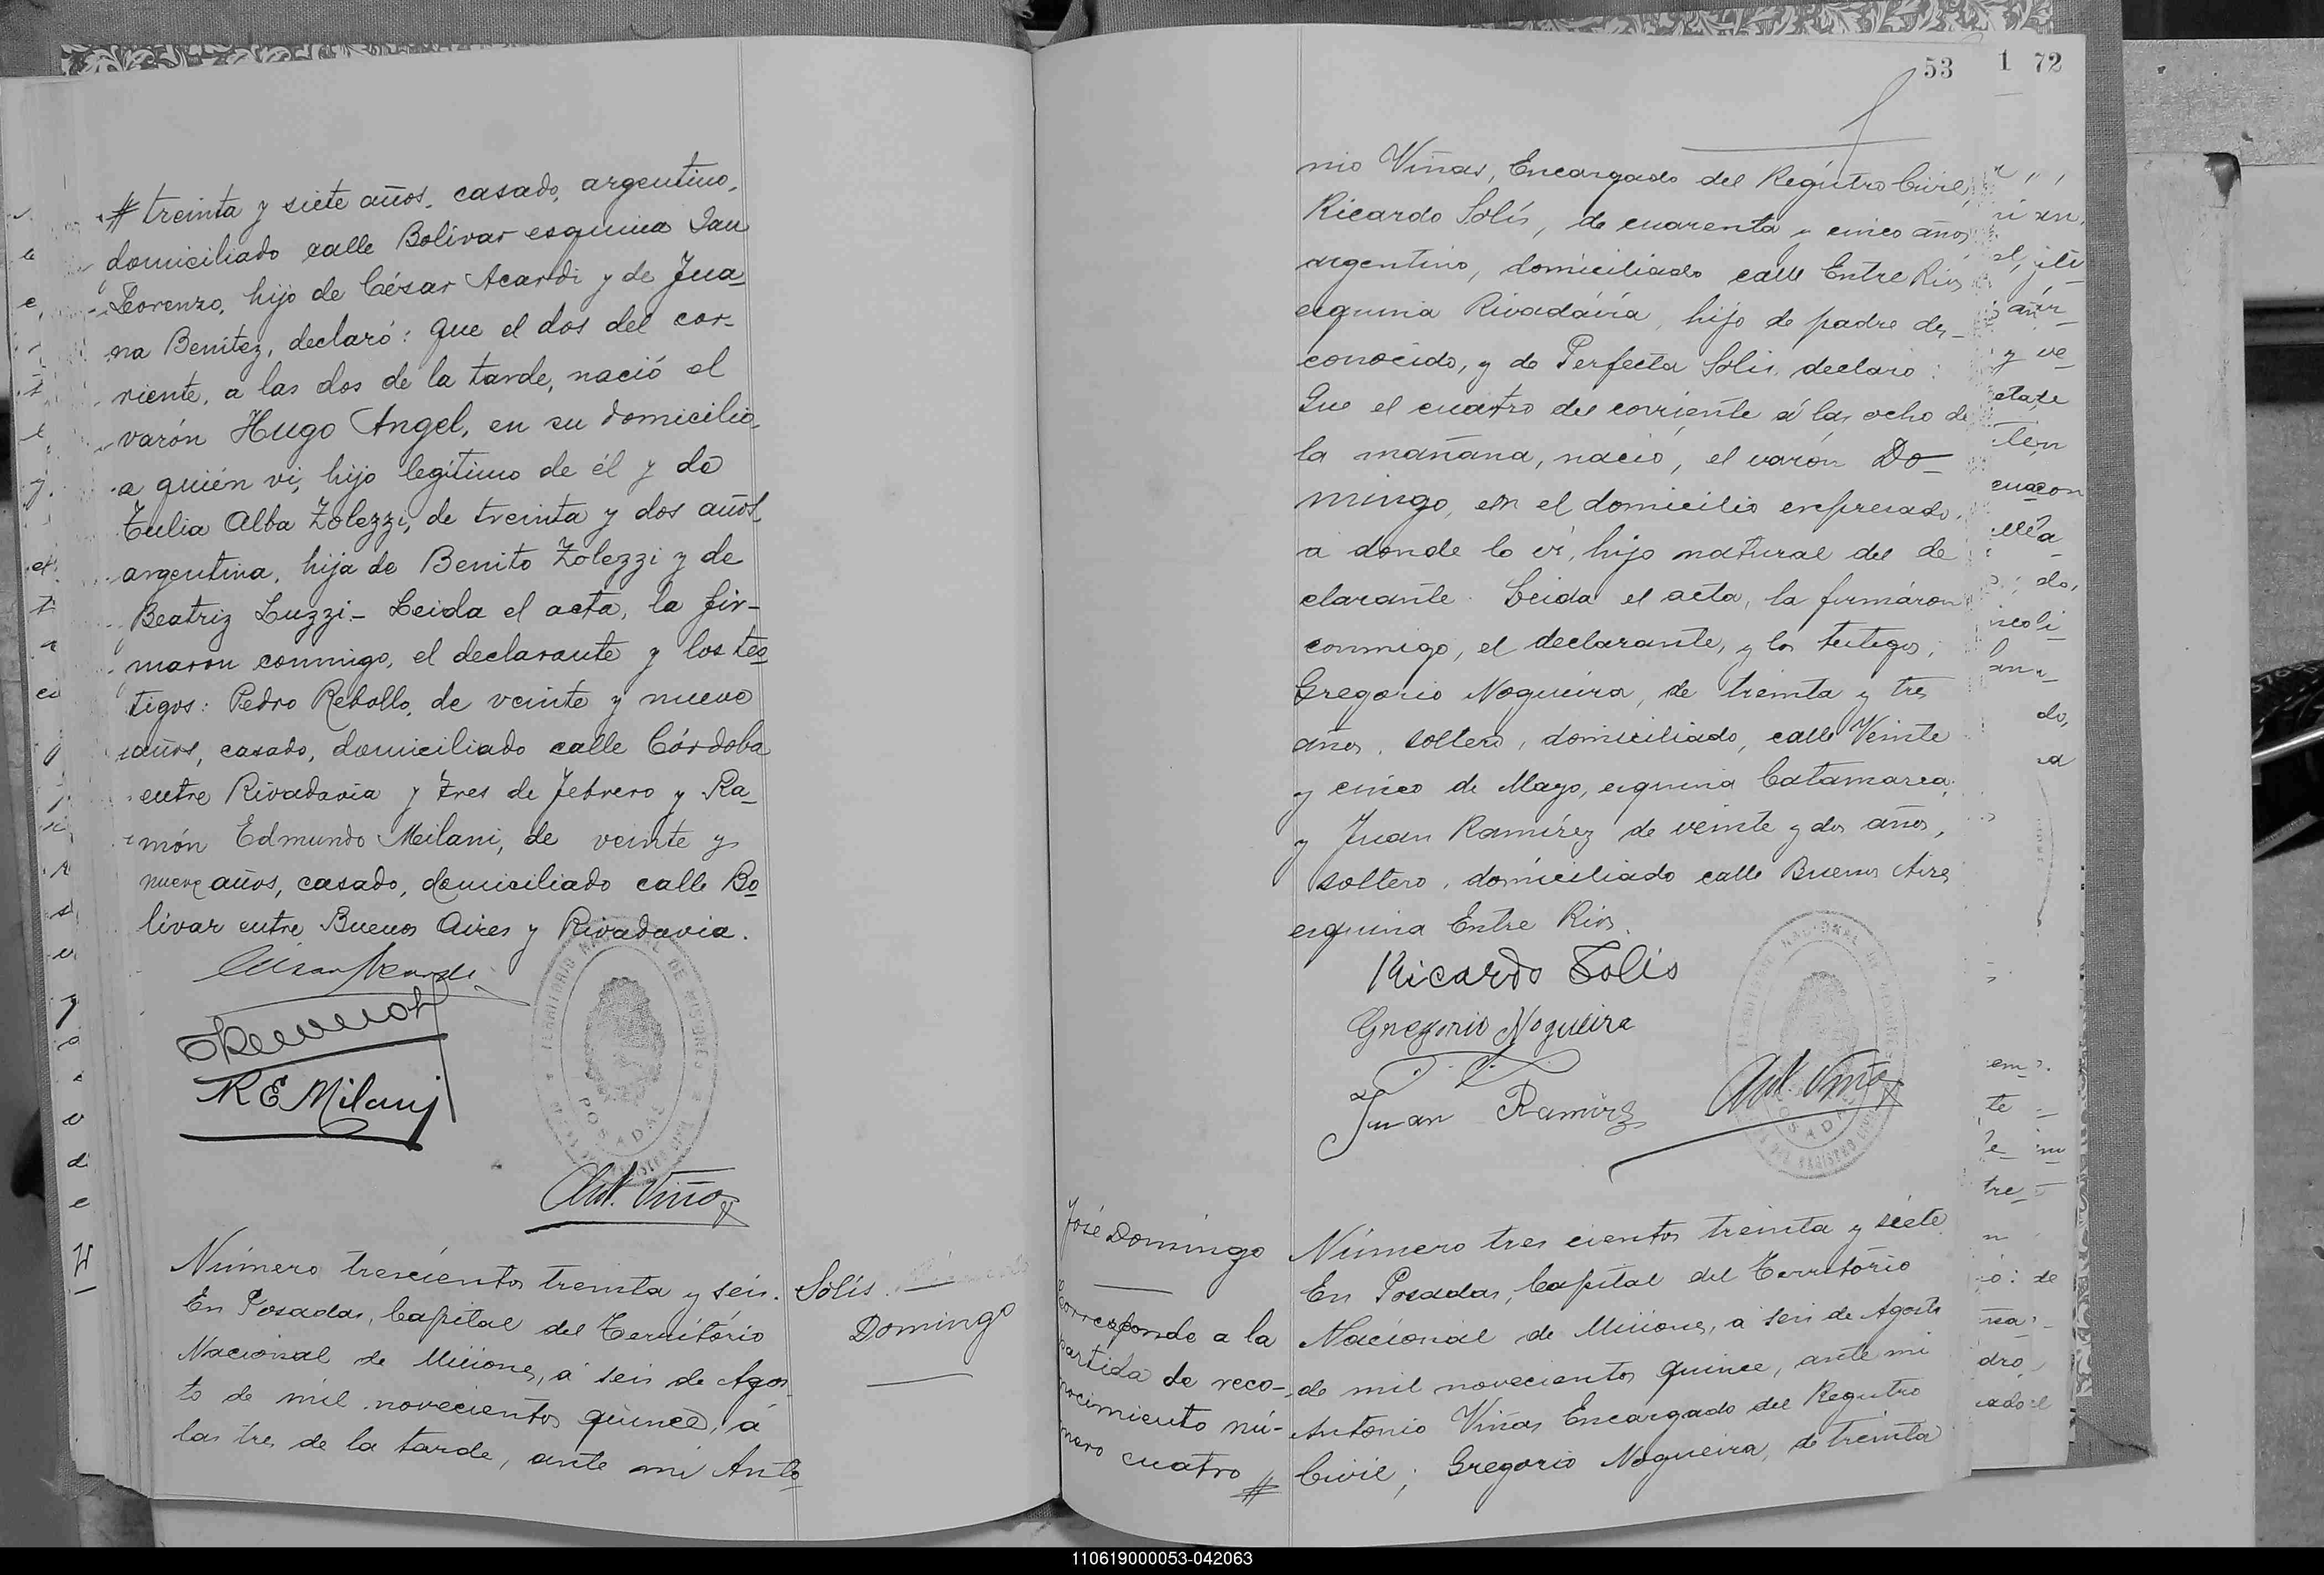 # treinta y siete años, casado, argentino,
domiciliado calle Bolívar esquina San
Lorenzo, hijo de César Acardi y de Jua_
na Benítez, declaró: Que el dos del cor-
riente, a las dos de la tarde, nació el
varón Hugo Angel, en su domicilio,
a quién vi, hijo legítimo de él y de
Tulia Alba Zolezzi, de treinta y dos años,
argentina, hija de Benito Zolezzi y de
Beatriz Luzzi.- Leida el acta, la fir-
maron conmigo, el declarante y los tes
tigos: Pedro Rebollo, de veinte y nueve
años, casado, domiciliado calle Córdoba
entre Rivadavia y tres de Febrero y Ra_
món Edmundo Meilani, de veinte y
nueve años, casado, domiciliado calle Bo
lívar entre Buenos Aires y Rivadavia.
R E Milani
TERRITORIO NACIONAL DE MISIONES
POSADAS
Ant. Viñas
Número trescientos treinta y seis.
En Posadas, Capital del Território
Nacional de Misiones, á seis de Agos
to de mil novecientos quince, á
las tres de la tarde, ante mí Anto
Solís.
Domingo
53 1 72
nio Viñas, Encargado del Régistro Civil,
Ricardo Solís, de cuarenta y cinco años,
argentino, domiciliado calle Entre Rios
esquina Rivadávia, hijo de padre des_
conocido, y de Perfecta Solis, declaro:
Que el cuatro del corriente á las ocho de
la mañana, nació, el varón Do_
mingo, en el domicilio expresado,
a donde lo ví, hijo natural del de
clarante. Leida el acta, la firmáron
conmigo, el declarante, y los testigos;
Gregorio Nogueira, de treinta y tres
años, soltero, domiciliado, calle Veinte
y cinco de Mayo, esquina Catamarca;
y Juan Ramírez de veinte y dos años,
soltero, domiciliado calle Buenos Aires
esquina Entre Rios.
Ricardo Solis
Gregorio Nogueira
Juan Ramirez
Ant. Viñas
José Domingo
Corresponde a la
partida de reco-
nocimiento nú-
mero cuatro #
Número tres cientos treinta y siete
En Posadas, Capital del Territorio
Nacional de Misiones, a seis de Agosto
de mil novecientos quince, ante mi
Antonio Viñas Encargado del Registro
Civil; Gregorio Nogueira, de treinta
110619000053-042063